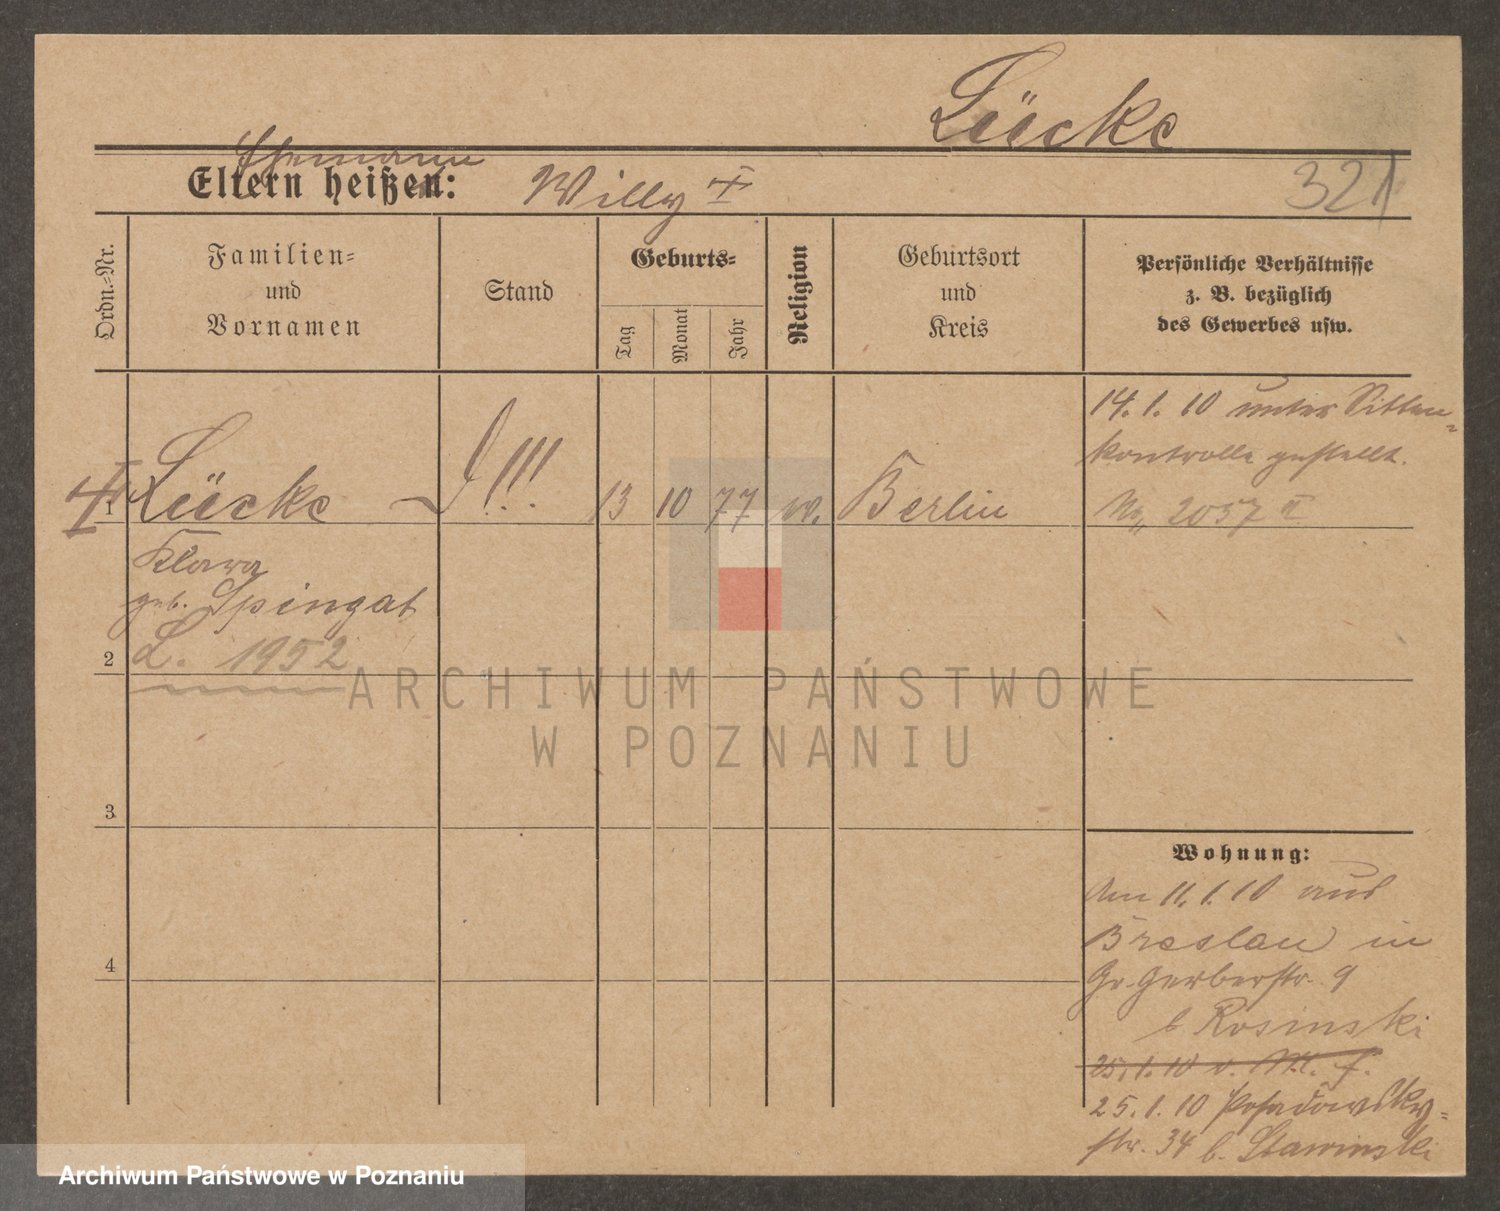 Lücke
Ehemann
Eltern heißen: Willy
321
Ordn.-Nr.
Familien-
und
Vornamen
Stand
Geburts-
Tag
Monat
Jahr
Religion
Geburtsort
und
Kreis
Persönliche Verhältnisse
z. B. bezüglich
des Gewerbes usw.
14. 1. 10 unter Sitten-
kontrolle gestellt.
1 Lücke !!! 13 10 77 Berlin 2057 II
Klara
geb. Spingat
2 L. 1952
ARCHIWUM PAŃSTWOWE
W POZNANIU
3
Wohnung:
Am 11. 1. 10 aus
Breslau in
4
Gr. Gerberstr. 9
b Rosinski
25. 1. 10 v.
25. 1. 10 Posadowsky-
str. 34 b. Stawinski
Archiwum Państwowe w Poznaniu